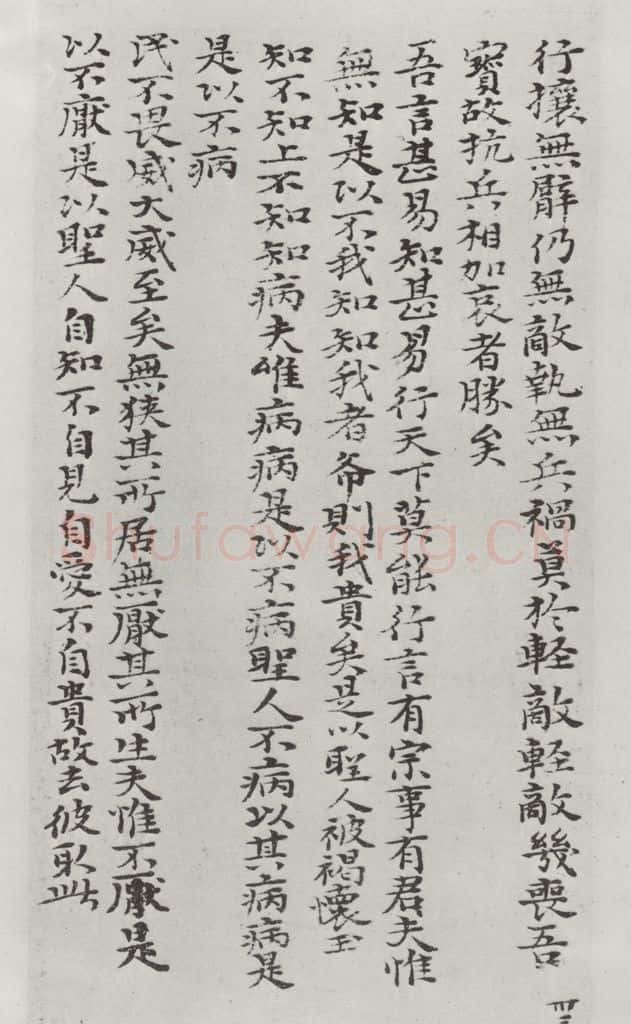 行攘無臂仍無敵執無兵禍莫於軽敵軽敵幾喪吾
寶故抗兵相加哀者勝矣
吾言甚易知甚易行天下莫能行言有宗事有君夫惟
無知是以不我知知我者希則我貴矣是以聖人被褐懷玉
知不知上不知知病夫唯病病是以不病聖人不病以其病病是
是以不病
民不畏威大威至矣無狹其所居無厭其所生夫惟不厭是
以不厭是以聖人自知不自見自愛不自貴故去彼取此
Shufawang.CN